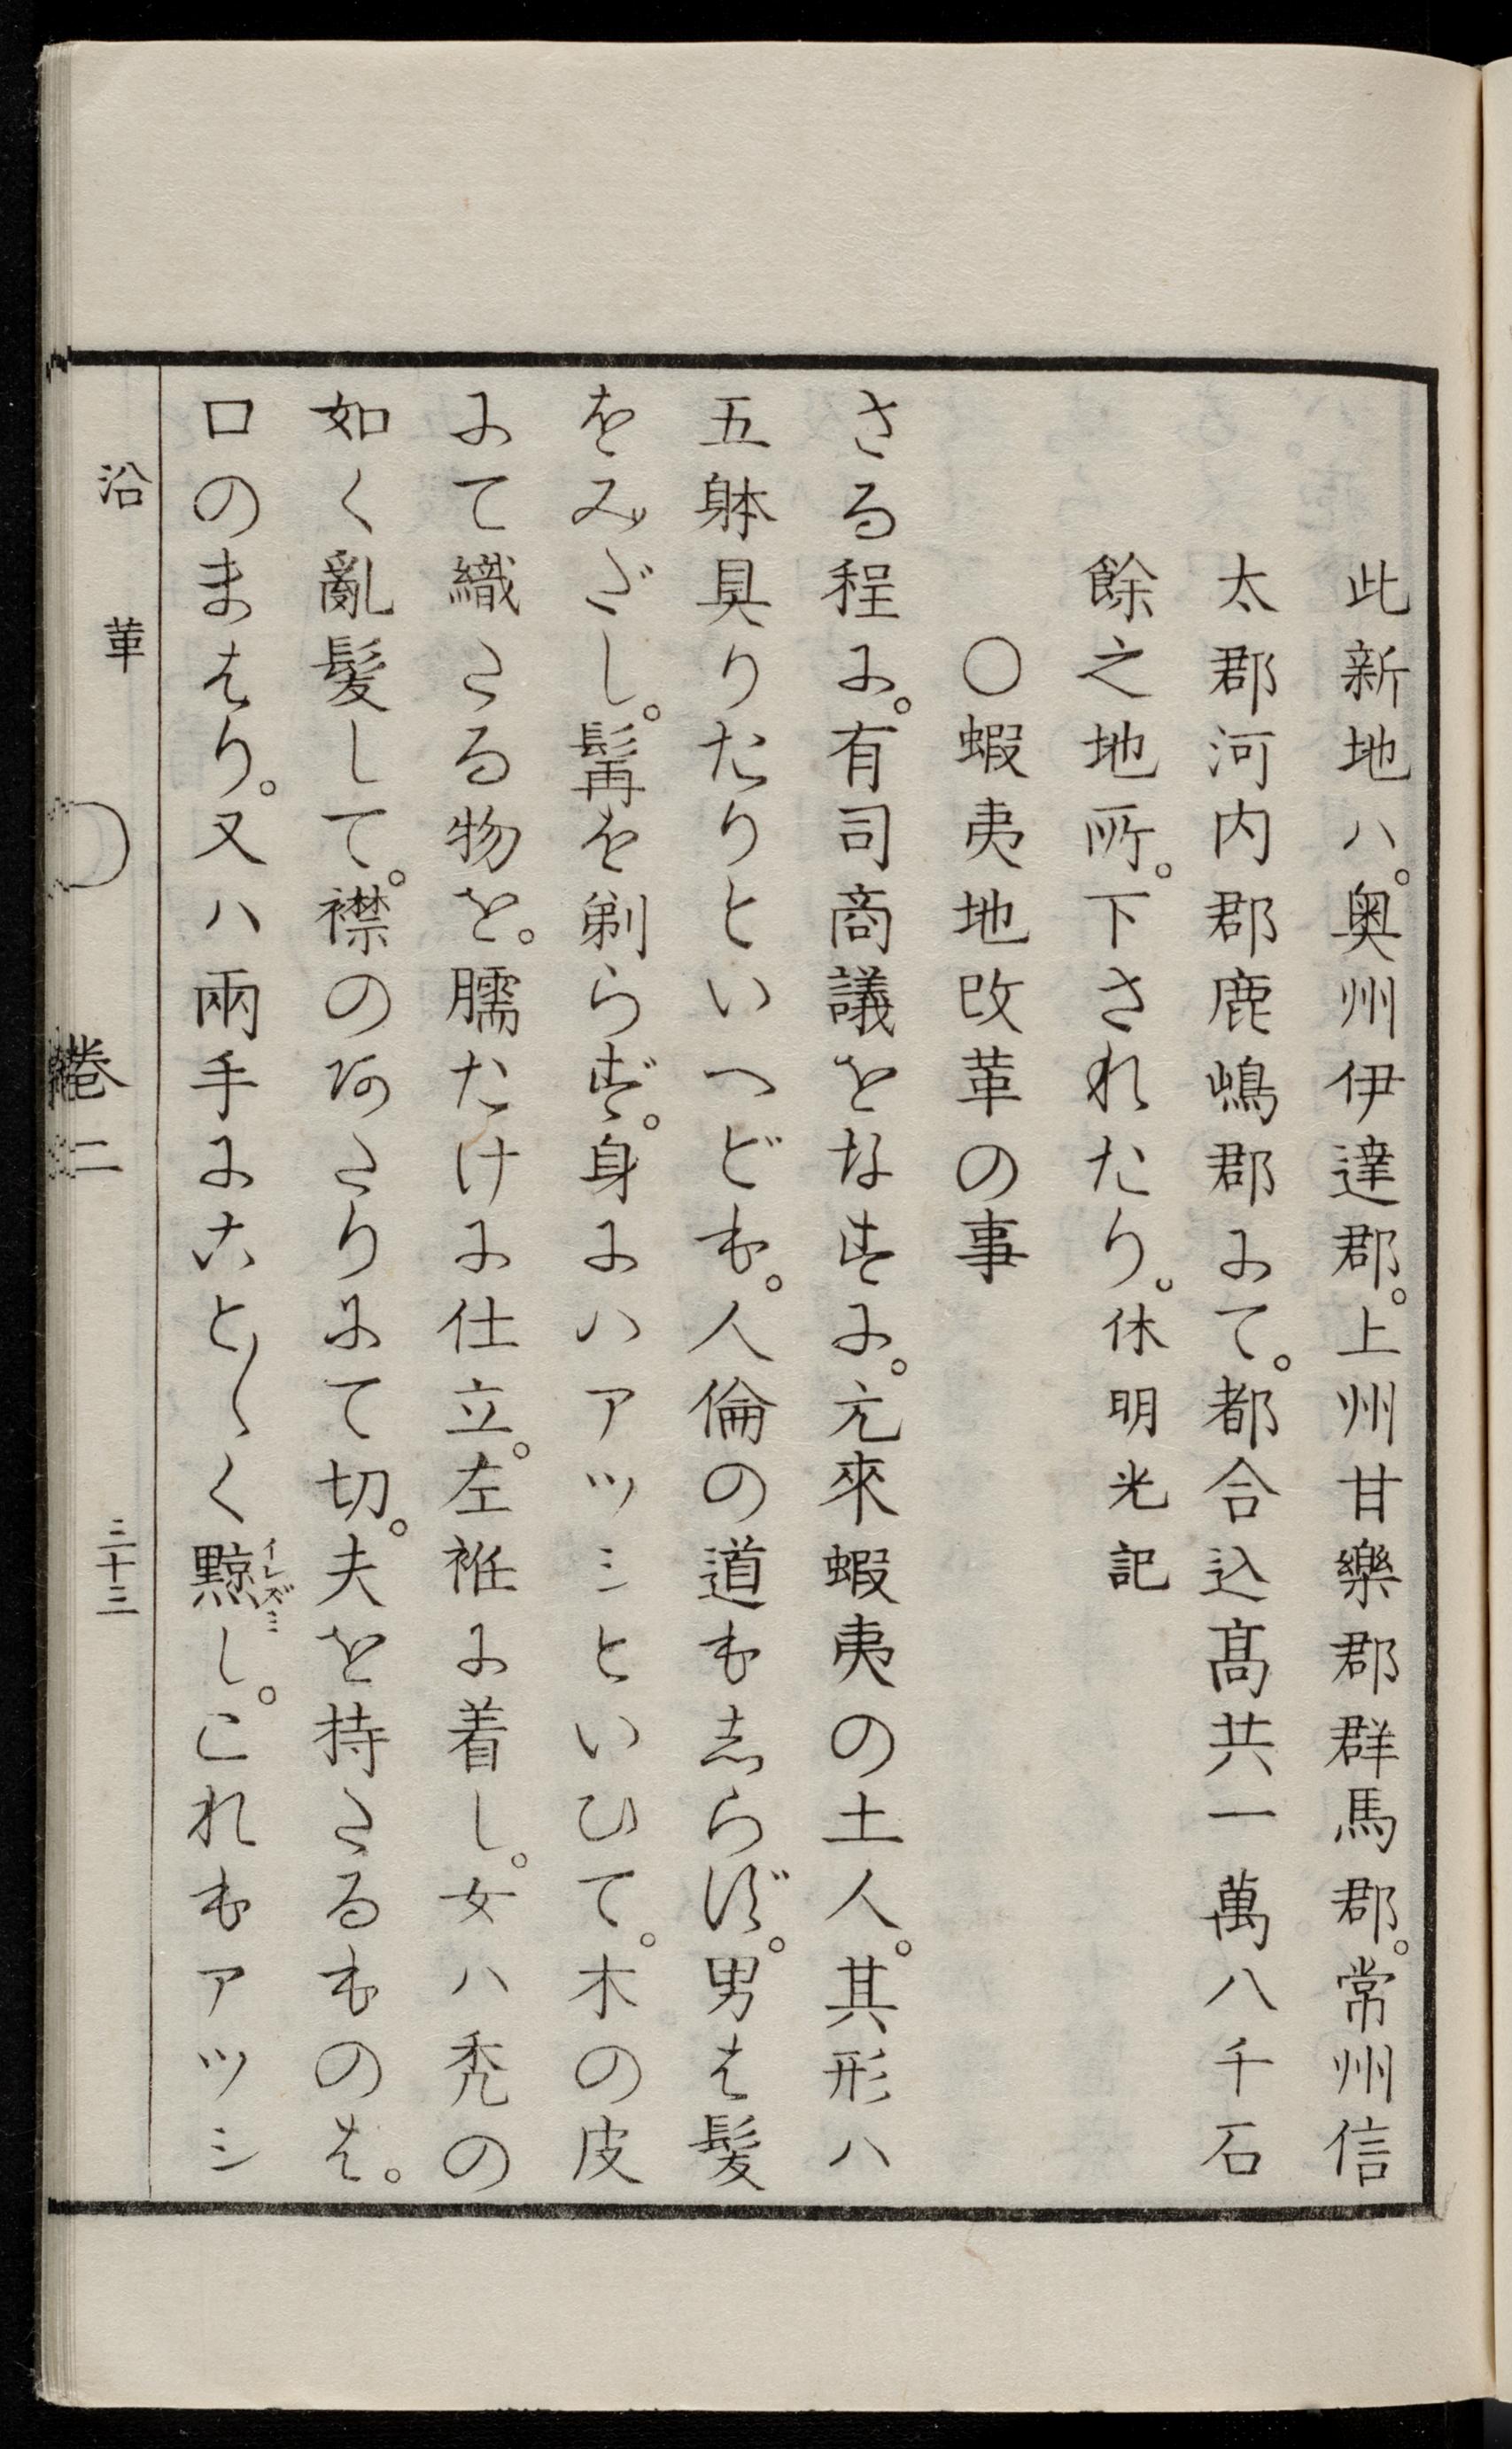 此新地ハ。奥州伊達郡。上州甘樂郡群馬郡。常州信
太郡河内郡鹿嶋郡にて。都合込髙共一萬八千石
餘之地所。下されたり。休明光記
〇蝦夷地改革の事
さる程に。有司商議をなすに。元來蝦夷の土人。其形ハ
五躰具りたりといへども。人倫の道もしらず。男は髪
をみだし。髯を剃らず。身にハアツシといひて。木の皮
にて織たる物を。臑たけに仕立。左袵に着し。女ハ禿の
如く亂髪して。襟のあたりにて切。夫を持たるものは。
口のまはり。又ハ兩手にこと〴〵く黥イレズミし。これもアツシ
沿革 巻二 三十三